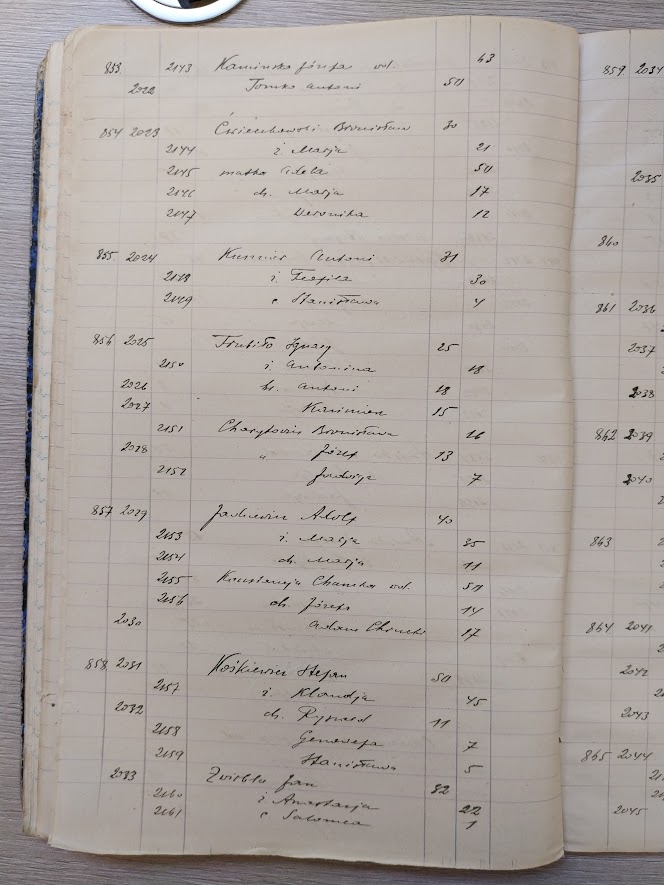 853 2143 Kamińska Józefa wd. 43
2022 Tomko Antoni 50
854 2023 Ćwiechowski Bronisław 30
2144 ż. Marja 21
2145 matka Adela 50
2146 dz. Marja 17
2147 Weronika 12
855 2024 Antoni 31
2148 ż. Teofila 30
2149 c Stanisława 4
856 2025 Ignacy 25
2150 ż. Antonina 18
2026 br. Antoni 18
2027 Kazimierz 15
2151 Bronisława 16
2028 " Józef 13
2152 Jadwiga 7
857 2029 Adolf 40
2153 ż. Marja 35
2154 dz. Marja 11
2155 Konstancja wd. 50
2156 dz. Józefa 14
2030 Adam 17
858 2031 Stefan 50
2157 ż. Klaudja 45
2032 dz. Ryszard 11
2158 Genowefa 7
2159 Stanisława 5
2033 Zwirbla Jan 32
2160 ż Anastazja 22
2161 c Salomea 1
859 2034
2035
860
861 2036
2037
2038
862 2039
2040
863
864 2041
2042
2043
865 2044
2045